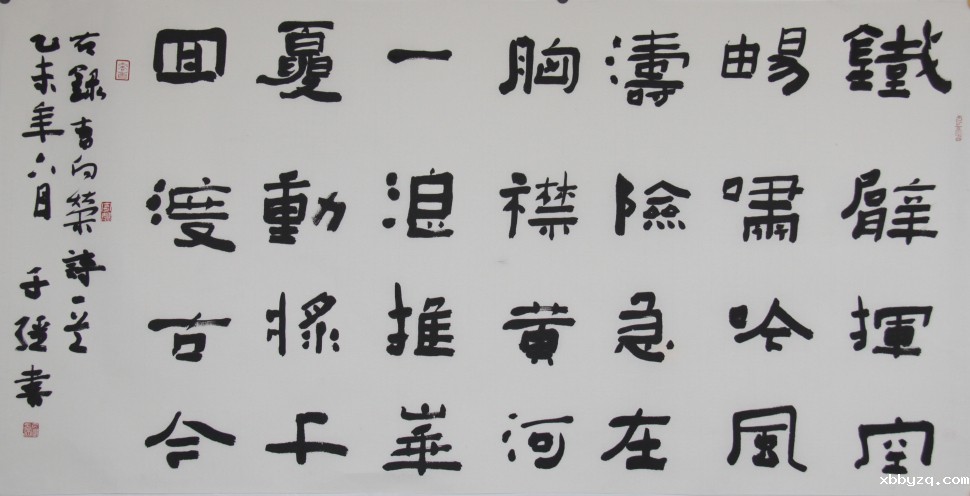 鐵臂揮空
暢嘯吟風
濤險急在
胸襟黄河
一浪推華
夏動槳千
回渡古今
右錄向榮詩一首
乙未年六月 書
xbbyzq.com